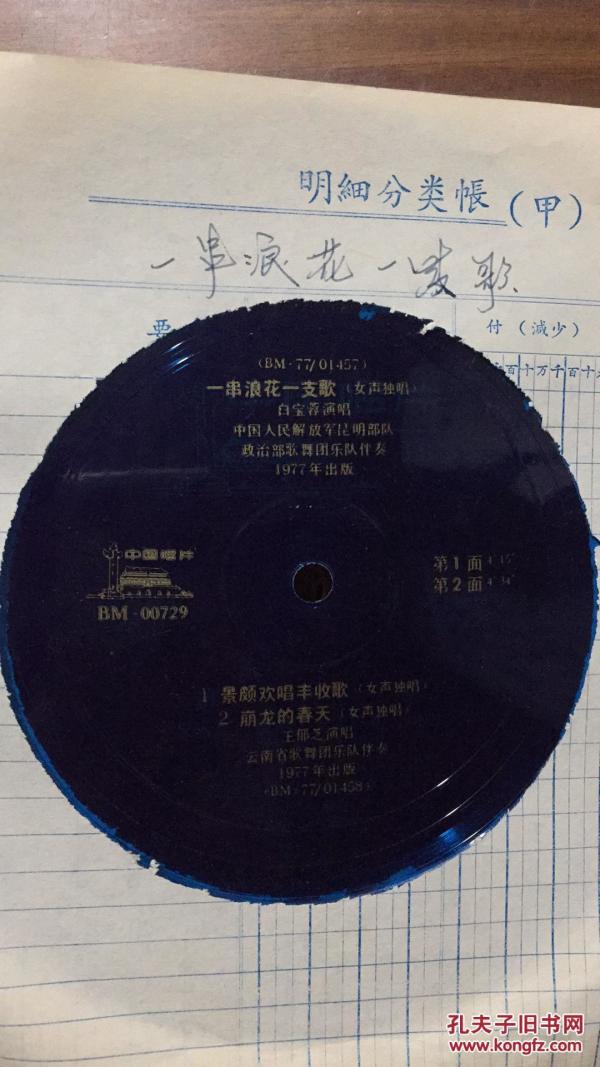 明細分类帳(甲)
一串浪花一支歌
要
付（減少）
百十万千百十
(BM-77/01457)
一串浪花一支歌（女声独唱）
白宝蓉演唱
中国人民解放军昆明部队
政治部歌舞团乐队伴奏
1977年出版
中国唱片
BM-00729
第1面4′15″
第2面4′34″
1 景颇欢唱丰收歌（女声独唱）
2 崩龙的春天（女声独唱）
王郁芝演唱
云南省歌舞团乐队伴奏
1977年出版
(BM-77/01458)
孔夫子旧书网
www.kongfz.com